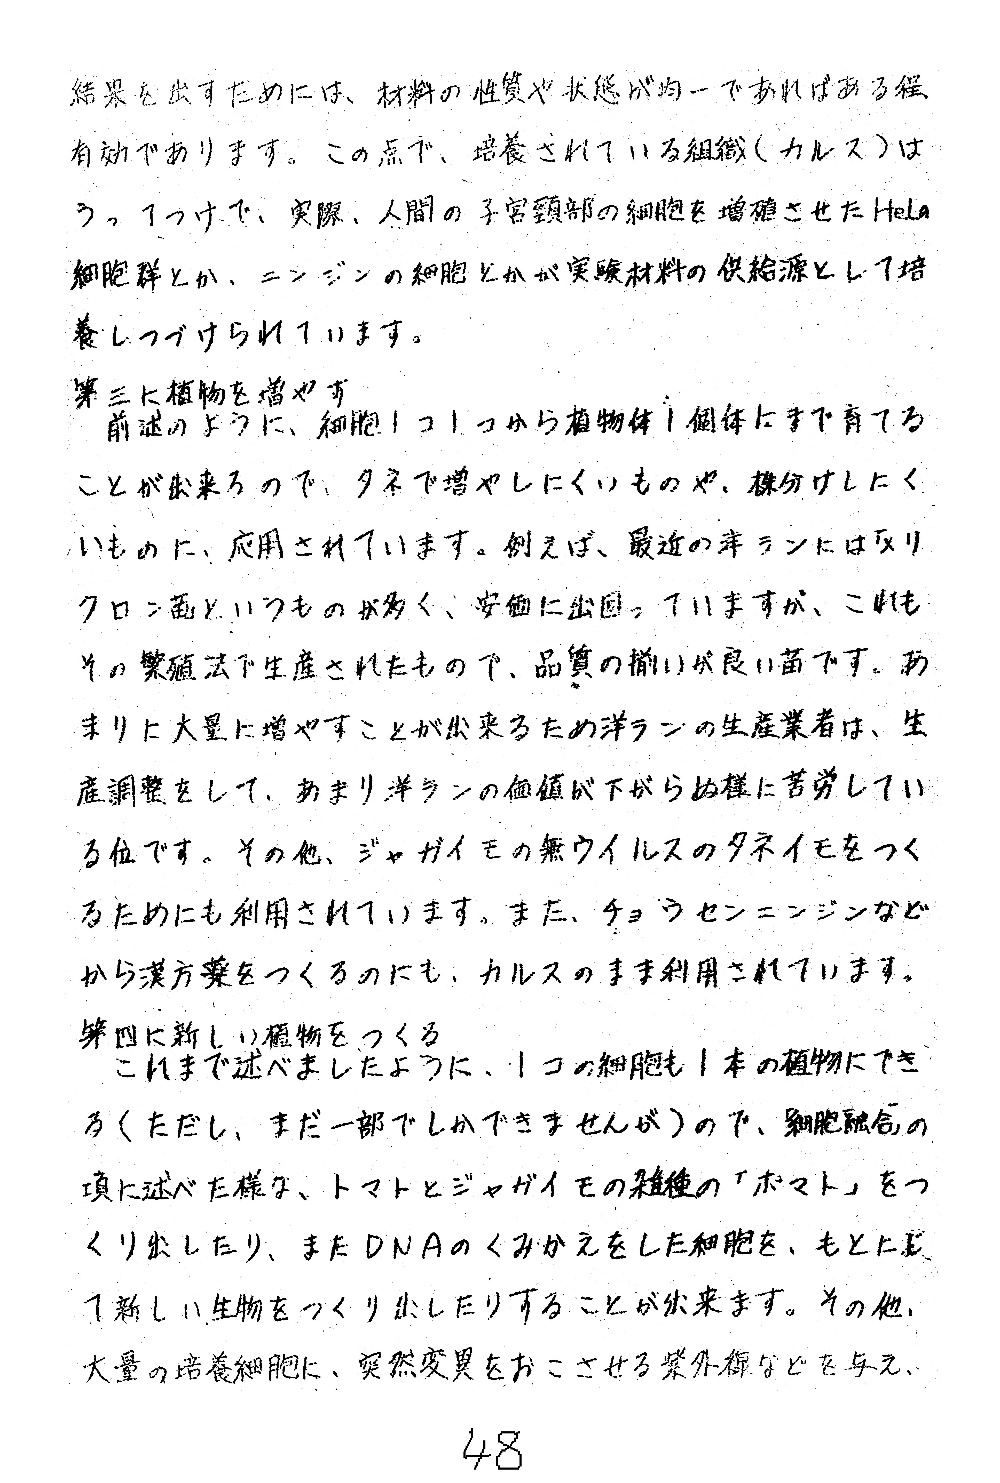 結果を出すためには、材料の性質や状態が均一であればある程
有効であります。この点で、培養されている組織(カルス)は
うってつけで、実際、人間の子宮頸部の細胞を増殖させたHeLa
細胞群とか、ニンジンの細胞とかが実験材料の供給源として培
養しつづけられています。
第三に植物を増やす
前述のように、細胞1コ1コから植物体1個体にまで育てる
ことが出来るので、タネで増やしにくいものや、株分けしにく
いものに、応用されています。例えば、最近の洋ランには「メリ
クロン苗」というものが多く、安価に出回っていますが、これも
その繁殖法で生産されたもので、品質の揃いが良い苗です。あ
まりに大量に増やすことが出来るため洋ランの生産業者は、生
産調整をして、あまり洋ランの価値が下がらぬ様に苦労してい
る位です。その他、ジャガイモの無ウイルスのタネイモをつく
るためにも利用されています。また、チョウセンニンジンなど
から漢方薬をつくるのにも、カルスのまま利用されています。
第四に新しい植物をつくる
これまで述べましたように、1コの細胞も1本の植物にでき
る(ただし、まだ一部でしかできませんが)ので、「細胞融合」の
項に述べた様な、トマトとジャガイモの雑種の「ポマト」をつ
くり出したり、またDNAのくみかえをした細胞を、もとにし
て新しい生物をつくり出したりすることが出来ます。その他、
大量の培養細胞に、突然変異をおこさせる紫外線などを与え、
48